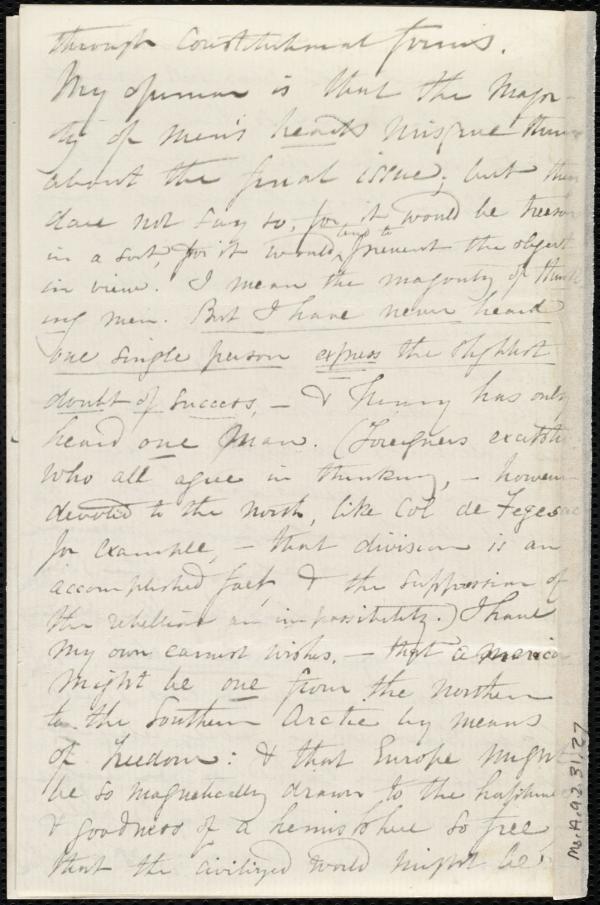 through Constitutional forms.
My opinion is that the Major-
ty of men's hearts misgive them
about the final issue; but they
dare not say so, for it would be treason
in a sort, for it would tend to prevent the object
in view. I mean the majority of think
ing men. But I have never heard
one single person express the slightest
doubt of success, — & Henry has only
heard one man. (Foreigners excepted
who all agree in thinking, — however
devoted to the North, like Col de Fegesac
for example, — that division is an
accomplished fact, & the suppression of
the rebellion an impossibility.) I have
my own earnest wishes, — that America
might be one from the northern
to the Southern Arctic by means
of freedom: & that Europe might
be so magnetically drawn to the happiness
& goodness of a hemisphere so free,
that the civilized world might be
Ms.A.9.2.31.27